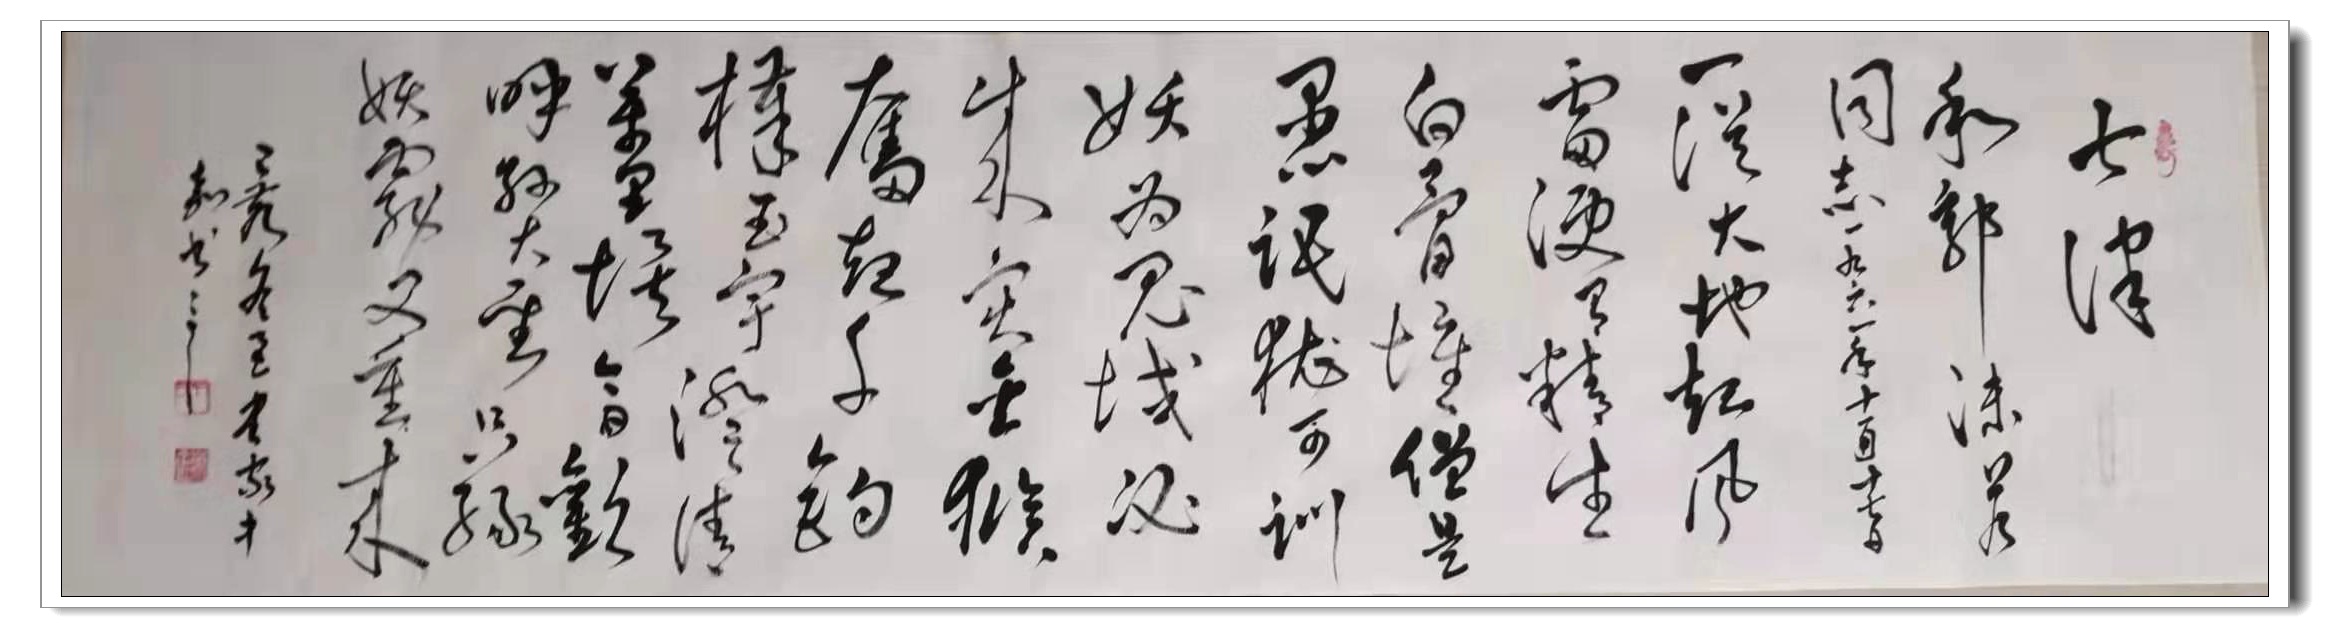 七律
和郭沫若
同志一九六一年十一月十七日
一從大地起风
雷便有精生
白骨堆僧是
愚氓猶可訓
妖为鬼蜮必
成灾金猴
奮起千鈞
棒玉宇澄清
萬里埃今日歡
呼孙大聖只缘
妖霧又重来
己亥冬至
书